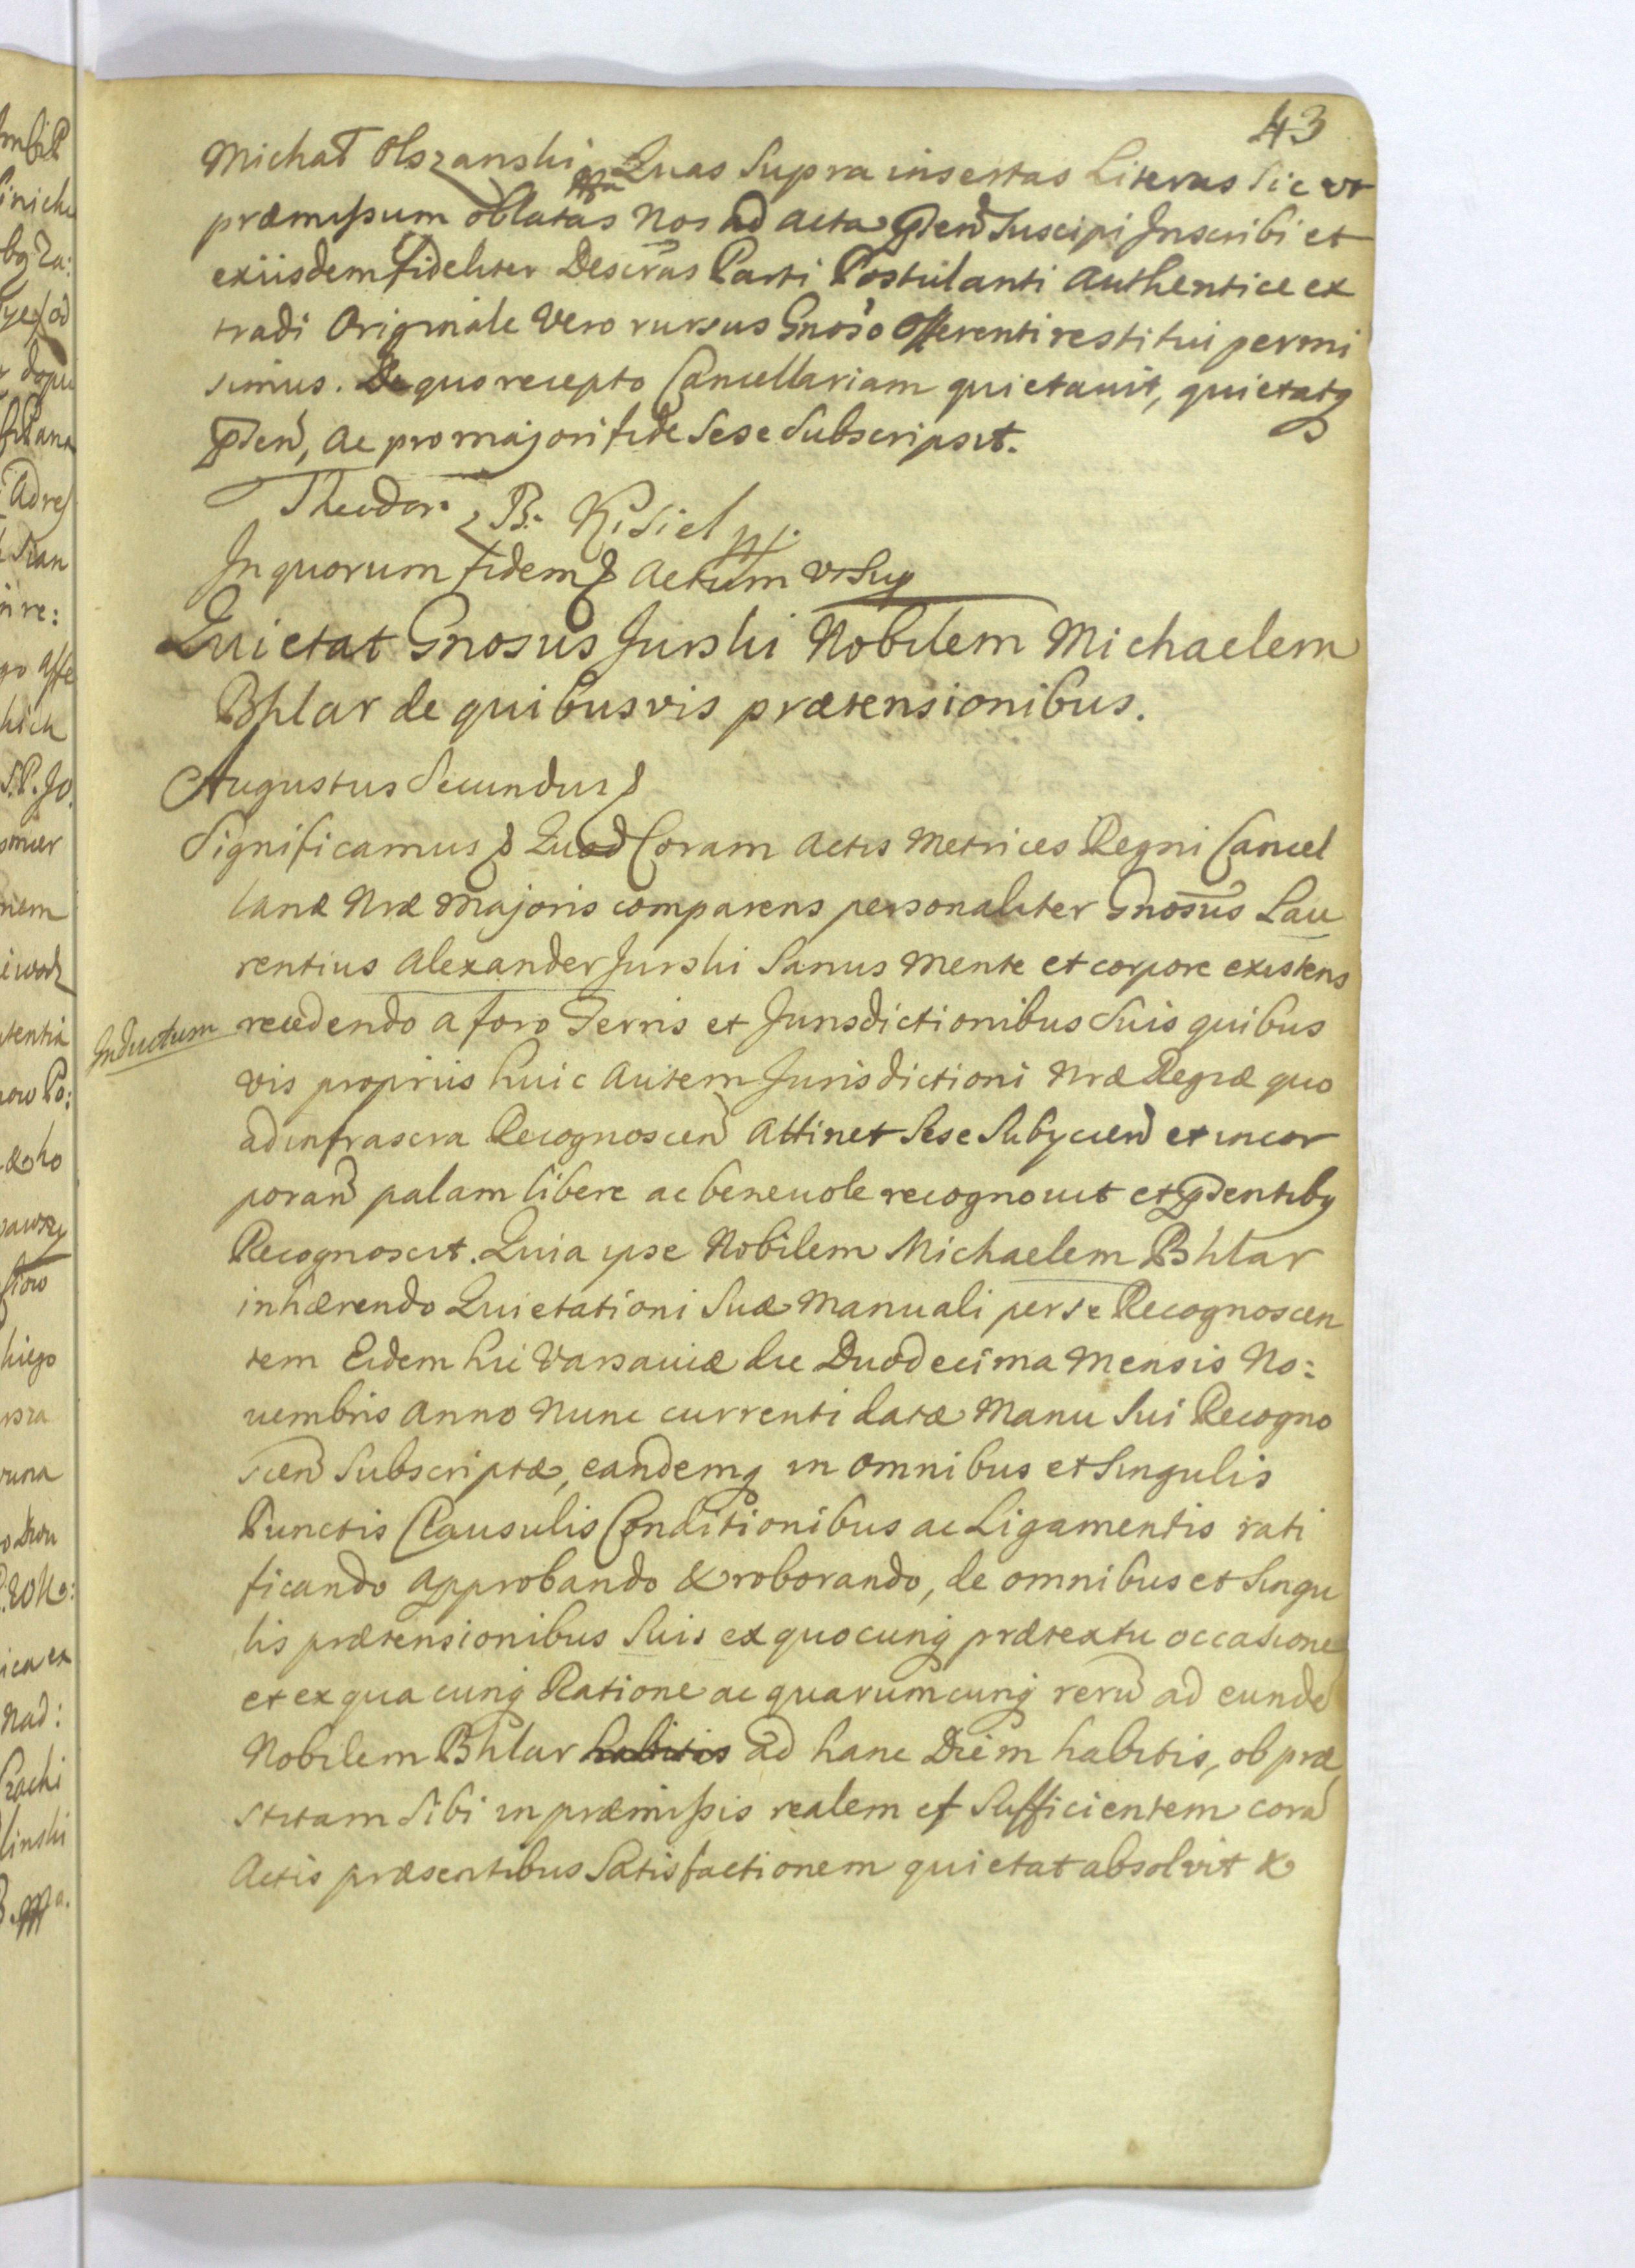 43
Michał Olszanski mpa Quas Supra insertas Literas Sic vt
præmissum oblatas Nos ad Acta pñtia Suscipi Inscribi et
exiisdem fideliter Descrãs Parti Postulanti Authentice ex
tradi Originale Vero rursus Gnoso Offerenti restitui permi
simus. De quo recepto Cancellariam quietauit, quietatq
pñten, ac pro majori fide Sese Subscripsit.
Theodor B. Kisiel
In quorum fidem & Actum vt Sup
Quietat Gnosus Jurski Nobilem Michaelem
Bhlar de quibusvis prætensionibus.
Augustus Secundus &
Significamus & Quod Coram Actis Metrices Regni Cancel
lariæ Nræ Majoris comparens personaliter Gnosus Lau
rentius Alexander Jurski Sanus Mente et corpore existens
Inductum
recedendo a foro Terris et Jurisdictionibus Suis quibus
vis propriis huic Autem Jurisdictioni Nræ Regiæ quo
ad infrascra Recognoscen Attinet Sese Subyciend et incor
porand palam libere ac beneuole recognouit et pdentibq
Recognoscit. Quia ipse Nobilem Michaelem Bhlar
inhærendo Quietationi Suæ Manuali per se Recognoscen
tem Eidem hic Varsauiæ die Duodecima Mensis No:
uembris Anno Nunc currenti datæ Manu Sui Recogno
scen Subscriptæ, eandemq in omnibus et Singulis
Punctis Clausulis Conditionibus ac Ligamentis rati
ficando Approbando & roborando, de omnibus et Singu
lis prætensionibus Suis ex quocunq prætextu occasione
et ex quacunq Ratione ac quarumcunq reru ad eunde
Nobilem Bhlar habitis ad hanc Diem habitis, ob præ
stitam Sibi in præmissis realem et Sufficientem cora
Actis præsentibus Satisfactionem quietat absolvit &